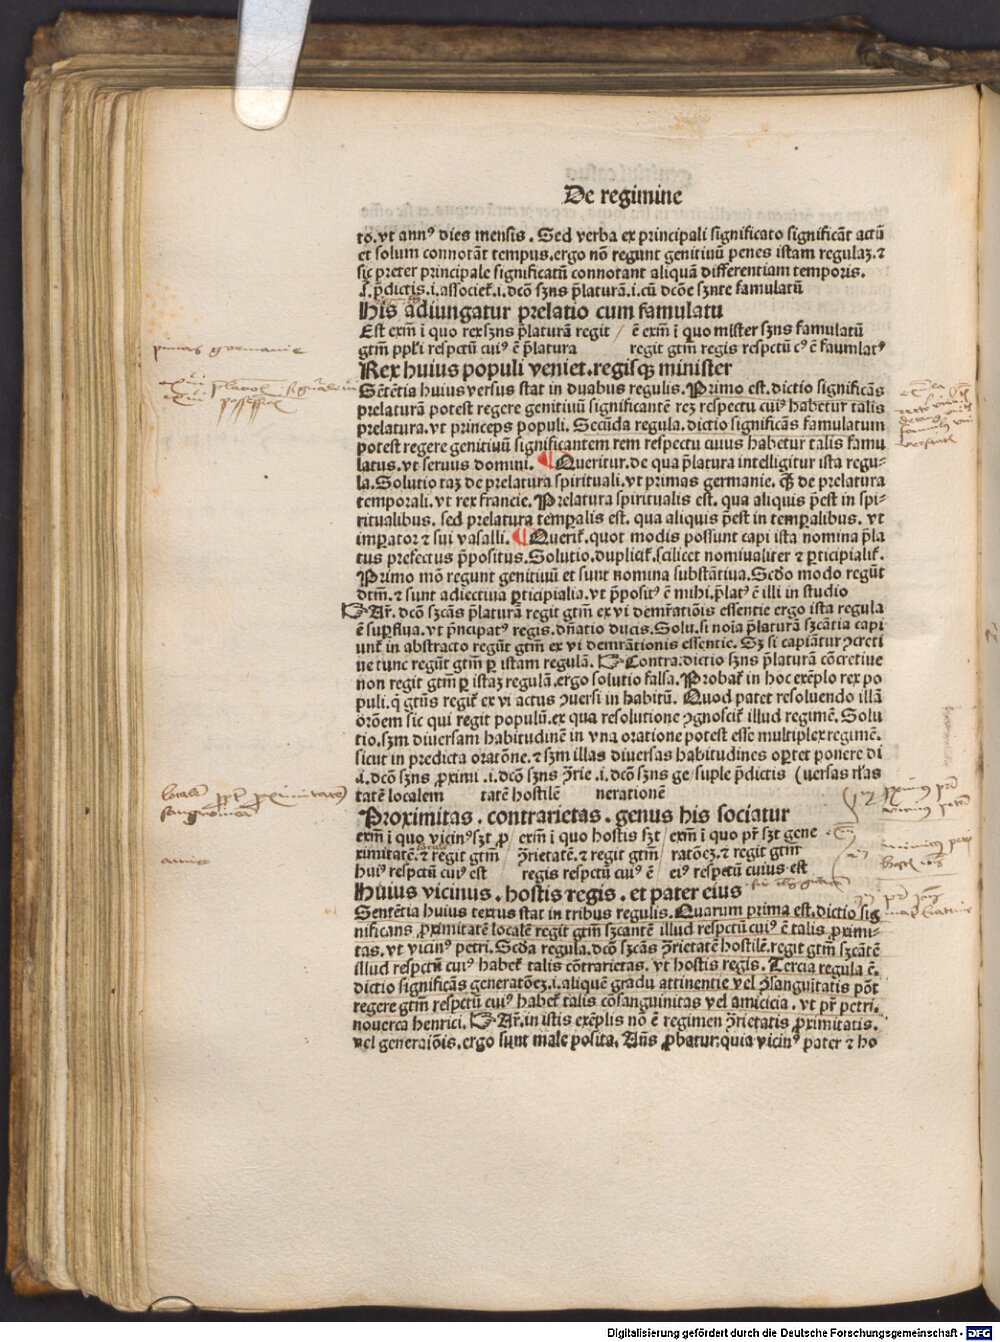 De regimine
to. vt annꝰ dies mensis. Sed verba ex principali significato significāt actū
et solum connotāt tempus. ergo nō regunt genitiuū penes istam regulaʒ. ⁊
sic preter principale significatū connotant aliquā differentiam temporis.
.s. p̄dictis .i. associet᷑ .i. dcōm sʒns p̄laturā .i. cū dcōe sʒnte famulatū
His adiungatur prelatio cum famulatu
Est exm̄ ī quo rex sʒns p̄laturā regit / ē exm̄ ī quo mīster sʒns famulatū
gtm̄ ppl̄i respctū cuiꝰ ē p̄latura regit gtm̄ regis respctū cꝰ ē faumlatꝰ
Rex huius populi veniet. regisqʒ minister
Sētētia huius versus stat in duabus regulis. Primo est. dictio significās
prelaturā potest regere genitiuū significantē reʒ respectu cuiꝰ habetur talis
prelatura. vt princeps populi. Secūda regula. dictio significās famulatum
potest regere genitiuū significantem rem respectu cuius habetur talis famu
latus. vt seruus domini. ¶ Queritur. de qua p̄latura intelligitur ista regu-
la. Solutio taʒ de prelatura spirituali. vt primas germanie. qʒ̄ de prelatura
temporali. vt rex francie. Prelatura spiritualis est. qua aliquis p̄est in spi-
ritualibus. sed prelatura temꝑalis est. qua aliquis p̄est in temꝑalibus. vt
imꝑator ⁊ sui vasalli. ¶ Querit᷑. quot modis possunt capi ista nomina p̄la
tus prefectus p̄positus. Solutio. duplicit᷑. scilicet nomiualiter ⁊ ꝑticipialit᷑.
Primo mō regunt genitiuū et sunt nomina substātiua. Scd̄o modo regūt
dtm̄. ⁊ sunt adiectiua ꝑticipialia. vt p̄positꝰ ē mihi. p̄latꝰ ē illi in studio
Ar̄. dcōm sʒcās p̄laturā regit gtm̄ ex vi demr̄atiōis essentie ergo ista regula
ē suꝑflua. vt p̄ncipatꝰ regis. dn̄atio ducis. Solu. si noīa p̄laturā sʒcātia capi
unt᷑ in abstracto regūt gtm̄ ex vi demrātionis essentie. Sʒ si capiātur ꝯcreti
ue tunc regūt gtm̄ ꝑ istam regulā. Contra: dictio sʒns p̄laturā cōcretiue
non regit gtm̄ ꝑ istaʒ regulā. ergo solutio falsa. Probat᷑ in hoc exēplo rex po
puli. q̄ gtn̄s regit᷑ ex vi actus ꝯuersi in habitū. Quod patet resoluendo illā
orōem sic qui regit populū. ex qua resolutione ꝯgnoscit᷑ illud regimē. Solu
tio. sʒm diuersam habitudinē in vna oratione potest esse multiplex regimē.
sicut in predicta oratōne. ⁊ sʒm illas diuersas habitudines oꝑtet ponere di
.i. dcōm sʒns ꝓximi .i. dcōm sʒns ꝯ̄rie .i. dcōm sʒns ge suple p̄dictis (uersas r̄las
tatē localem tatē hostilē nerationē
Proximitas. contrarietas. genus his sociatur
exm̄ ī quo vicinꝰ sʒt ꝓ / exm̄ ī quo hostis sʒt / exm̄ ī quo pr̄ sʒt gene
ximitatē. ⁊ regit gtm̄ / ꝯ̄rietatē. ⁊ regit gtm̄ / ratōeʒ. ⁊ regit gtm̄
huiꝰ respctū cuiꝰ est / regis respctū cuiꝰ ē / eiꝰ respctū cuius est
Huius vicinus. hostis regis. et pater eius
Sentētia huius textus stat in tribus regulis. Quarum prima est. dictio sig
nificans ꝓximitatē localē regit gtm̄ sʒcantē illud respctū cuiꝰ ē talis ꝓximi-
tas. vt vicinꝰ petri. Scd̄a regula. dcōm sʒcās ꝯ̄rietatē hostilē. regit gtm̄ sʒcātē
illud respctū cuiꝰ habet᷑ talis cōtrarietas. vt hostis regis. Tercia regula ē.
dictio significās generatōeʒ. i. aliquē gradu attinentie vel ꝯ̄sanguitatis pōt
regere gtm̄ respctū cuiꝰ habet᷑ talis cōsanguinitas vel amicicia. vt pr̄ petri.
nouerca henrici. Ar̄. in istis exēplis nō ē regimen ꝯ̄rietatis ꝓximitatis.
vel generaiōis. ergo sunt male posita. Añs ꝓbatur: quia vicinꝰ pater ⁊ ho
primas germanie
Digitalisierung gefördert durch die Deutsche Forschungsgemeinschaft - DFG